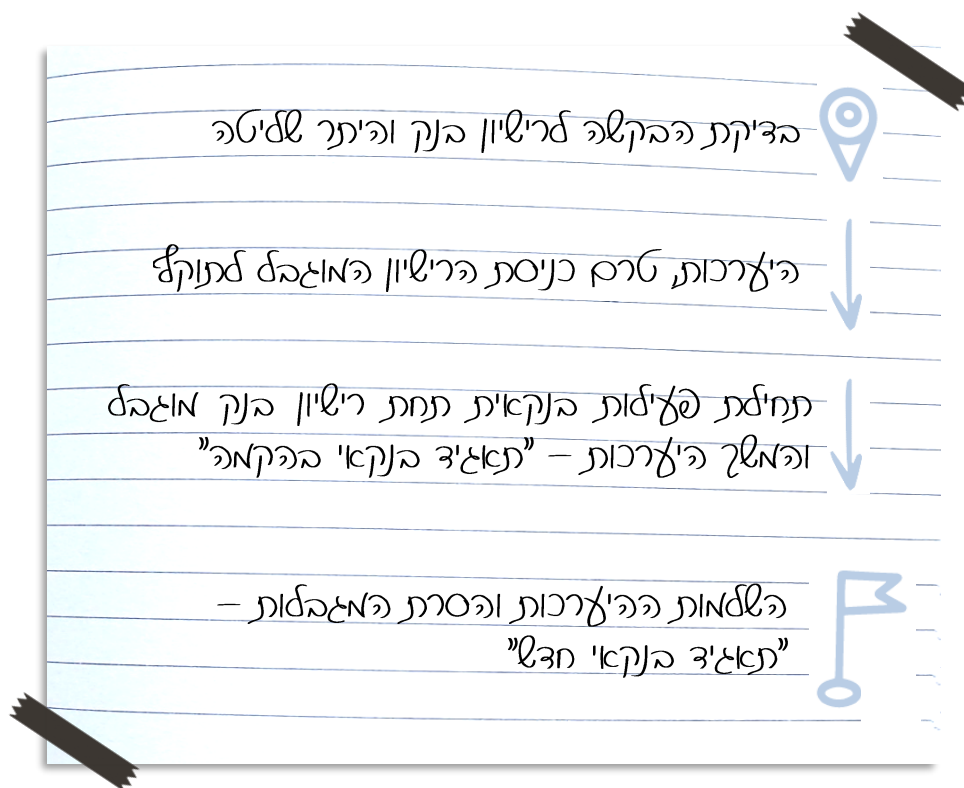 בדיקת הבקשה לרישיון בנק והיתר שליטה
היערכות, טרם כניסת הרישיון המוגבל לתוקף
תחילת פעילות בנקאית תחת רישיון בנק מוגבל
והמשך היערכות – "תאגיד בנקאי בהקמה"
השלמות ההיערכות והסרת המגבלות –
"תאגיד בנקאי חדש"